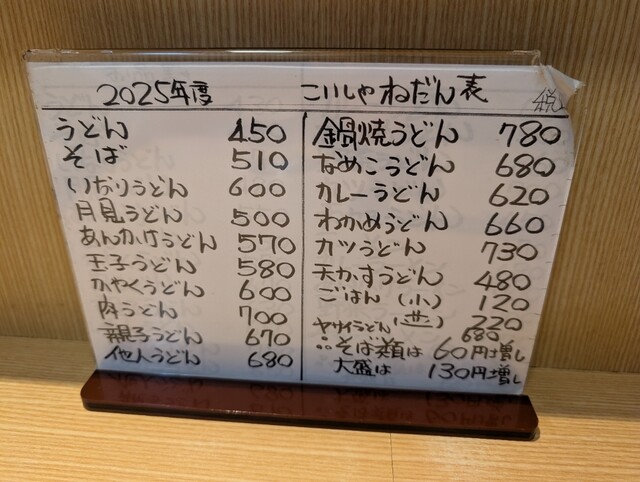 2025年度 こいしゃねだん表
税
うどん 450
そば 510
いなりうどん 600
月見うどん 500
あんかけうどん 570
玉子うどん 580
かやくうどん 600
肉うどん 700
親子うどん 670
他人うどん 680
鍋焼うどん 780
なめこうどん 680
カレーうどん 620
わかめうどん 660
カツうどん 730
天かすうどん 480
ごはん (小) 120
(並) 220
ヤサイうどん 680
そば類は 60円増し
大盛は 130円増し